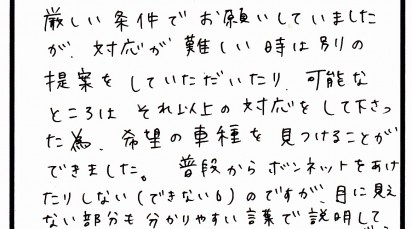 厳しい条件でお願いしていました
が、対応が難しい時は別の
提案をしていただいたり、可能な
ところは それ以上の対応をして下さっ
た為、希望の車種を見つけることが
できました。 普段からボンネットをあけ
たりしない(できない6)のですが、目に見え
ない部分も分かりやすい言葉で説明して